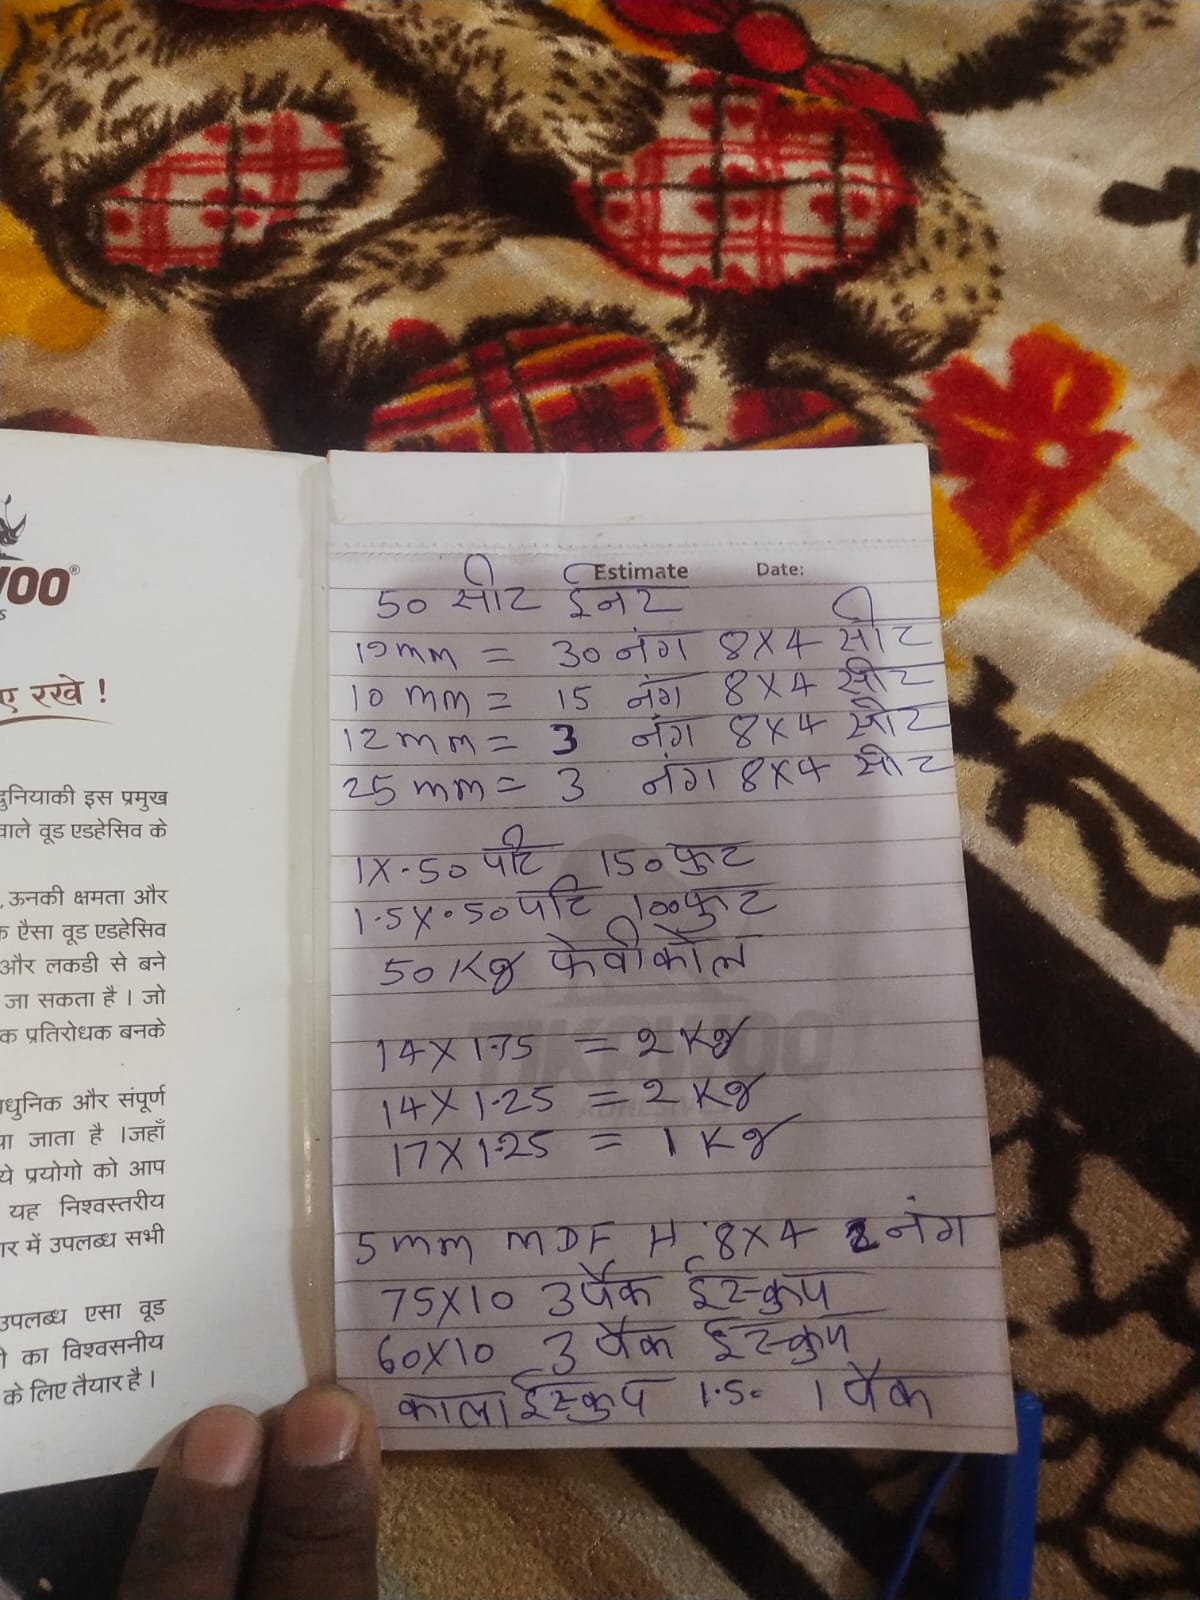 OO®
ए रखे !
दुनियाकी इस प्रमुख
वाले वूड एडहेसिव के
ऊनकी क्षमता और
ऐसा वूड एडहेसिव
और लकडी से बने
जा सकता है । जो
क प्रतिरोधक बनके
और संपूर्ण
जाता है ।जहाँ
ये प्रयोगो को आप
यह निश्वस्तरीय
में उपलब्ध सभी
उपलब्ध एसा वूड
का विश्वसनीय
के लिए तैयार है ।
Estimate Date:
50 सीट ईनट
19mm = 30 नंग 8X4 सीट
10 mm = 15 नंग 8X4 सीट
12mm = 3 नंग 8X4 सीट
25mm = 3 नंग 8X4 सीट
1X.50 पटि 150 फुट
1.5X.50 पटि 100फुट
50 Kg फेवीकोल
14X1.75 = 2 Kg
14X1.25 = 2 Kg
17X1.25 = 1 Kg
5mm MDF H 8X4 2 नंग
75X10 3 पैक ईस्कुप
60X10 3 पैक ईस्कुप
काला ईस्कुप 1.50 1 पैक
TIKAWOO
ADHESIVES